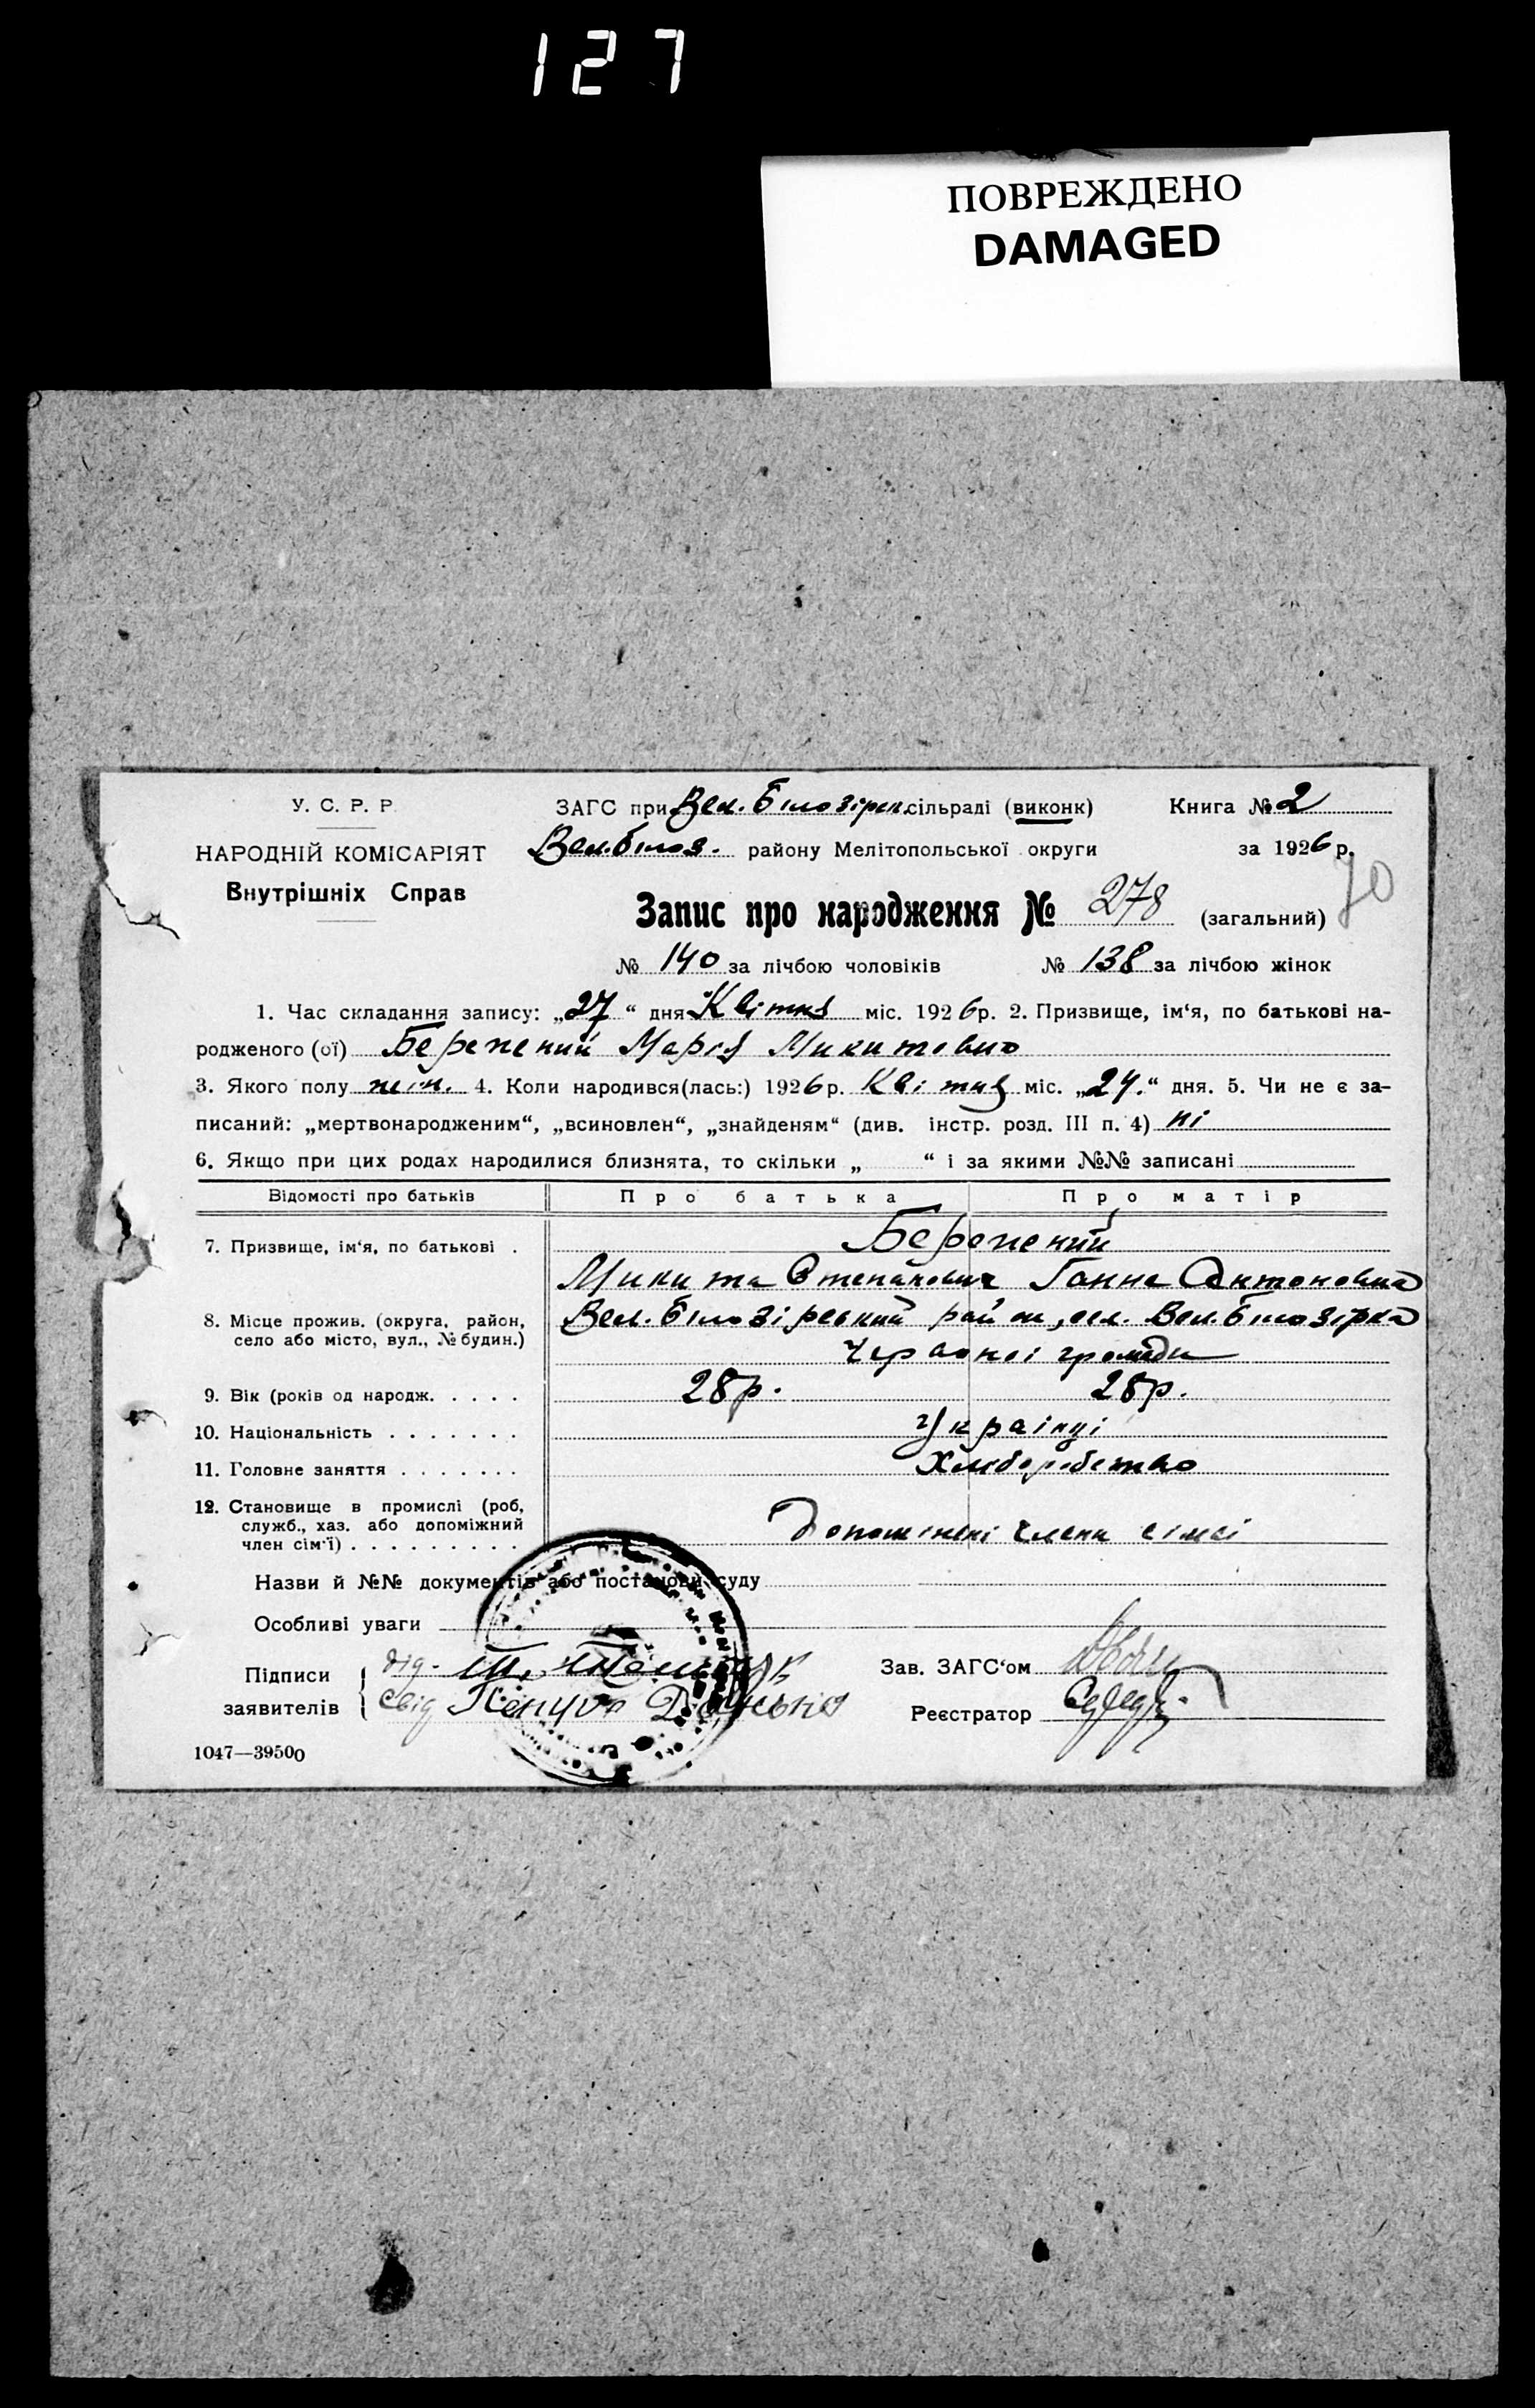 127
ПОВРЕЖДЕНО
DAMAGED
У. С. Р. Р.
НАРОДНІЙ КОМІСАРІЯТ
Внутрішніх Справ
ЗАГС при Вел. Білозірск. сільраді (виконк) Книга № 2
Вел. Білоз. району Мелітопольської округи за 1926 р.
70
Запис про народження № 278 (загальний)
№ 140 за лічбою чоловіків № 138 за лічбою жінок
1. Час складання запису: „27“ дня Квітня міс. 1926 р. 2. Призвище, ім‘я, по батькові на-
родженого (ої) Бережний Марія Микитовно
3. Якого полу жін. 4. Коли народився(лась:) 1926 р. Квітня міс. „24.“ дня. 5. Чи не є за-
писаний: „мертвонародженим“, „всиновлен“, „знайденям“ (див. інстр. розд. III п. 4) ні
6. Якщо при цих родах народилися близнята, то скільки „ “ і за якими №№ записані
Відомості про батьків Про батька Про матір
7. Призвище, ім‘я, по батькові . Бережний
Микита Степанович Ганна Антоновна
8. Місце прожив. (округа, район,
село або місто, вул., № будин.)
Вел. Білозірський район, сел. Вел. Білозірка
Червоної громади
9. Вік (років од народж. . . . . 28 р. 28 р.
10. Національність . . . . . . . Українці
11. Головне заняття . . . . . . . Хліборобство
12. Становище в промислі (роб,
служб., хаз. або допоміжний
член сім‘ї) . . . . . . . . . Допоміжні члени сімєї
Назви й №№ документів або постанови суду
Особливі уваги
Підписи
заявителів
дід.
Свід
Зав. ЗАГС‘ом
Реєстратор
1047—39500